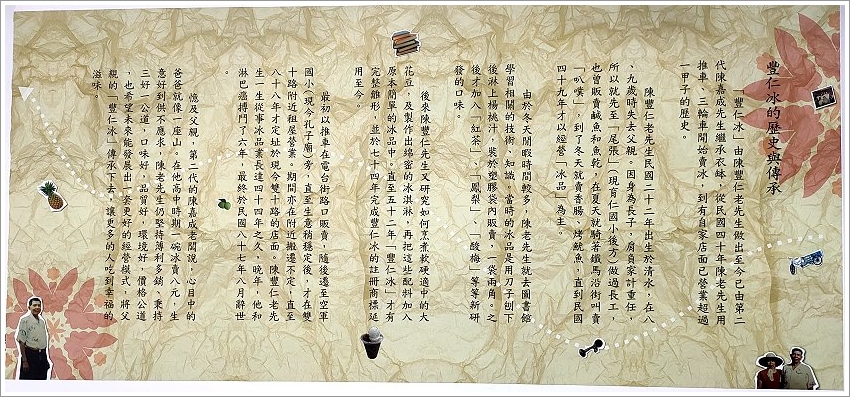 豐仁冰的歷史與傳承
「豐仁冰」由陳豐仁老先生做出至今已由第二
代陳嘉成先生繼承衣缽，從民國四十年陳老先生用
推車、三輪車開始賣冰，到有自家店面已營業超過
一甲子的歷史。
陳豐仁老先生民國二十二年出生於清水，在八
、九歲時失去父親。因身為長子，肩負家計重任，
所以就先至「尾張」（現育仁國小後方）做過長工，
也曾販賣鹹魚和魚乾，在夏天就騎著鐵馬沿街叫賣
「叭噗」，到了冬天就賣香腸、烤魷魚，直到民國
四十九年才以經營「冰品」為主。
由於冬天閒暇時間較多，陳老先生就去圖書館
學習相關的技術、知識。當時的冰品是用刀子刨下
後淋上楊桃汁，裝於塑膠袋內販賣，一袋兩角。之
後才加入「紅茶」、「鳳梨」、「酸梅」等等新研
發的口味。
後來陳豐仁先生又研究如何烹煮軟硬適中的大
花豆，及製作出綿蜜的冰淇淋，再把這些配料加入
原本簡單的冰品中。直至五十二年「豐仁冰」才有
完整雛形，並於七十四年完成豐仁冰的註冊商標延
用至今。
最初以推車在電台街路口販賣，隨後遷至空軍
國小（現今孔子廟）旁，直至生意稍穩定後，才在雙
十路附近租屋營業。期間亦在附近搬遷不定，直至
八十八年才定址於現今雙十路的店面。陳豐仁老先
生一生從事冰品業長達四十四年之久，晚年，他和
淋巴癌搏鬥了六年，最終於民國八十七年八月辭世
。
憶及父親，第二代的陳嘉成老闆說，心目中的
爸爸就像一座山。在他高中時期一碗冰賣八元，生
意好到供不應求，陳老先生仍堅持薄利多銷，秉持
三好一公道，口味好，品質好，環境好，價格公道
，也希望未來能發展出一套更好的經營模式，將父
親的「豐仁冰」傳承下去，讓更多的人吃到幸福的
滋味。